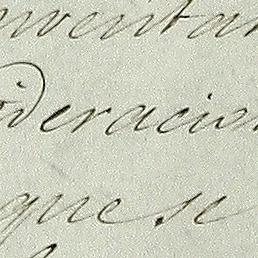 nventar
ideracion
que se